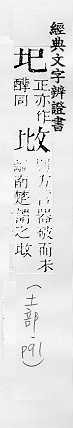 經典文字辨證書
圮 正亦作
同
㪏 方言器破而未
離南楚謂之㪏
(土部-p91)